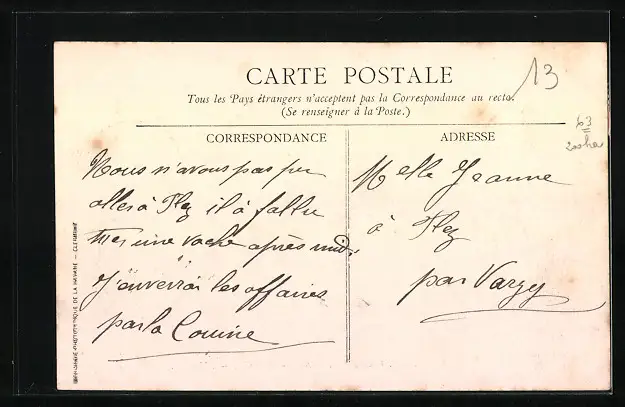 13
CARTE POSTALE
Tous les Pays étrangers n'acceptent pas la Correspondance au recto.
(Se renseigner à la Poste.)
63
CORRESPONDANCE
ADRESSE
Nous n'avons pas pu
aller à Fley il à fallu
tuer une vache après midi
J'enverrai les affaires
par la Couine
Melle Jeanne
à Fley
par Varzy
PHOTOTYPIQUE DE LA HAVANE — CLERMONT